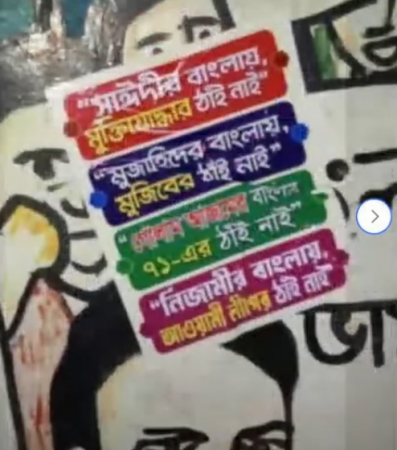 "সাঈদীর বাংলায়,
মুক্তিযোদ্ধার ঠাঁই নাই"
"মুজাহিদের বাংলায়,
মুজিবের ঠাঁই নাই"
"গোলাম আজমের বাংলায়
৭১-এর ঠাঁই নাই"
"নিজামীর বাংলায়,
আওয়ামী লীগের ঠাঁই নাই"